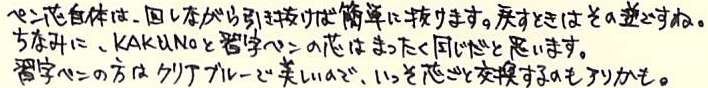 ペン芯自体は、回しながら引き抜けば簡単に抜けます。戻すときはその逆ですね。
ちなみに、KAKUNOと習字ペンの芯はまったく同じだと思います。
習字ペンの方はクリアブルーで美しいので、いっそ芯ごと交換するのもアリかも。